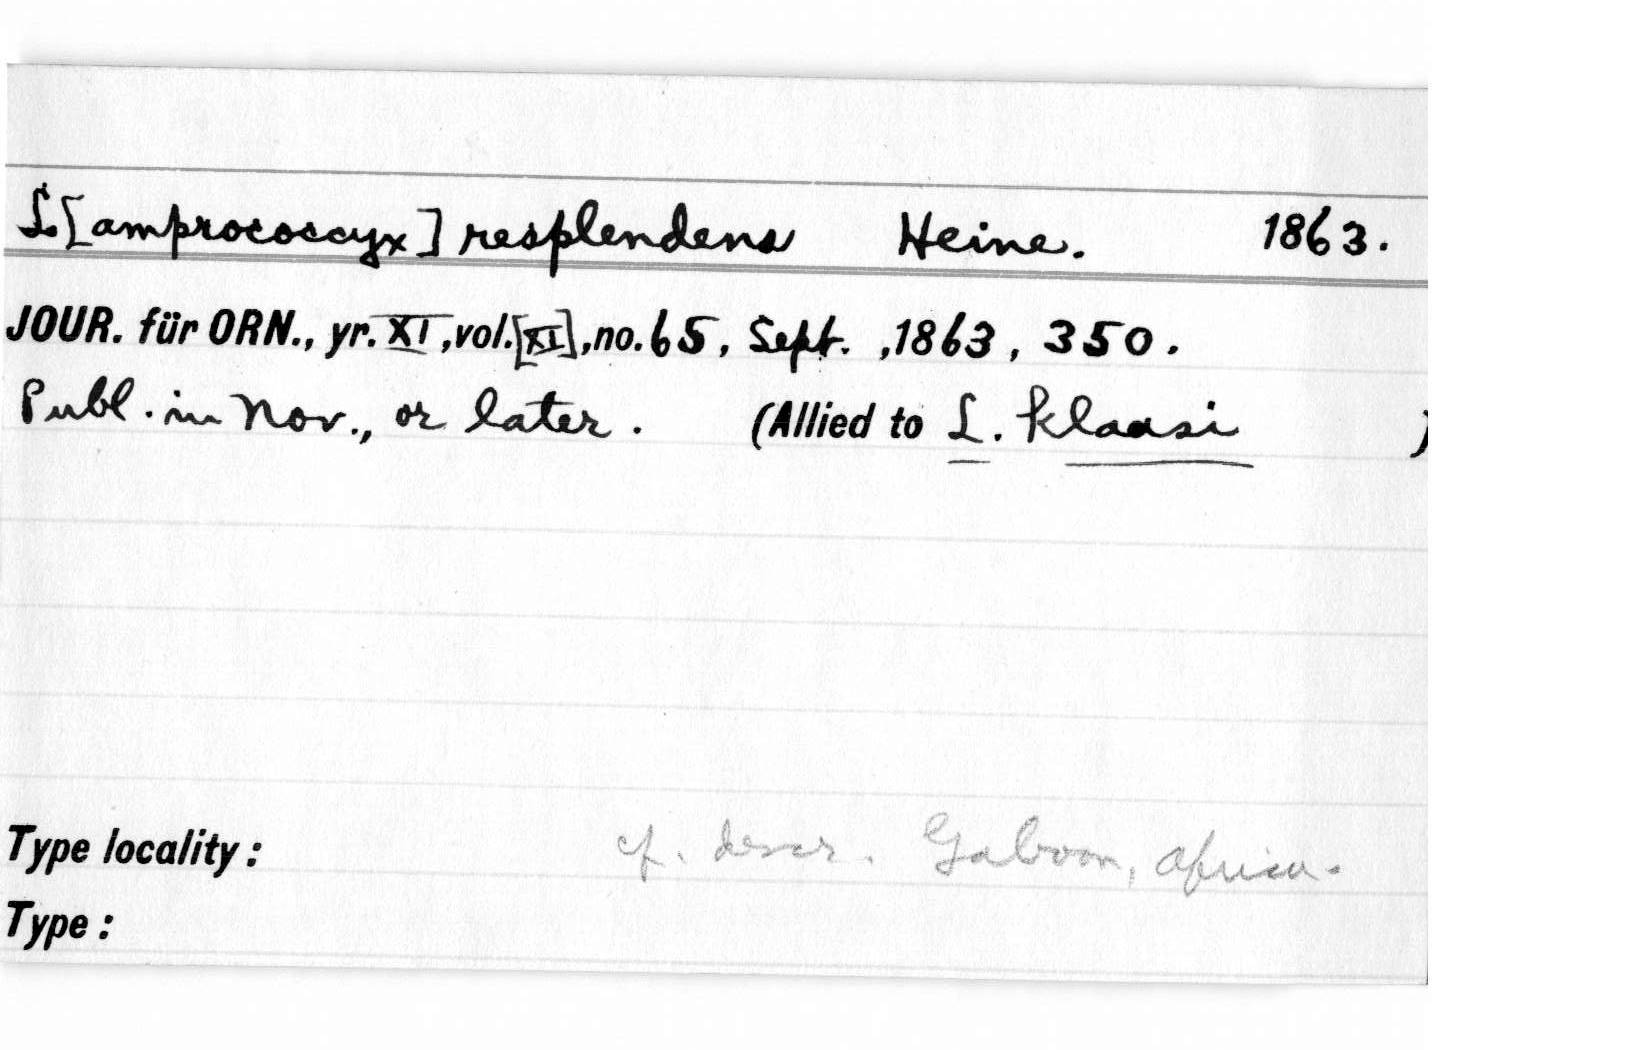 L.[amprococcyx] resplendens Heine. 1863.
JOUR. für ORN., yr. XI, vol. [XI], no. 65, Sept., 1863, 350.
Publ. in Nov., or later. (Allied to L. klaasi )
Type locality: cf. descr. Gaboon, Africa.
Type: